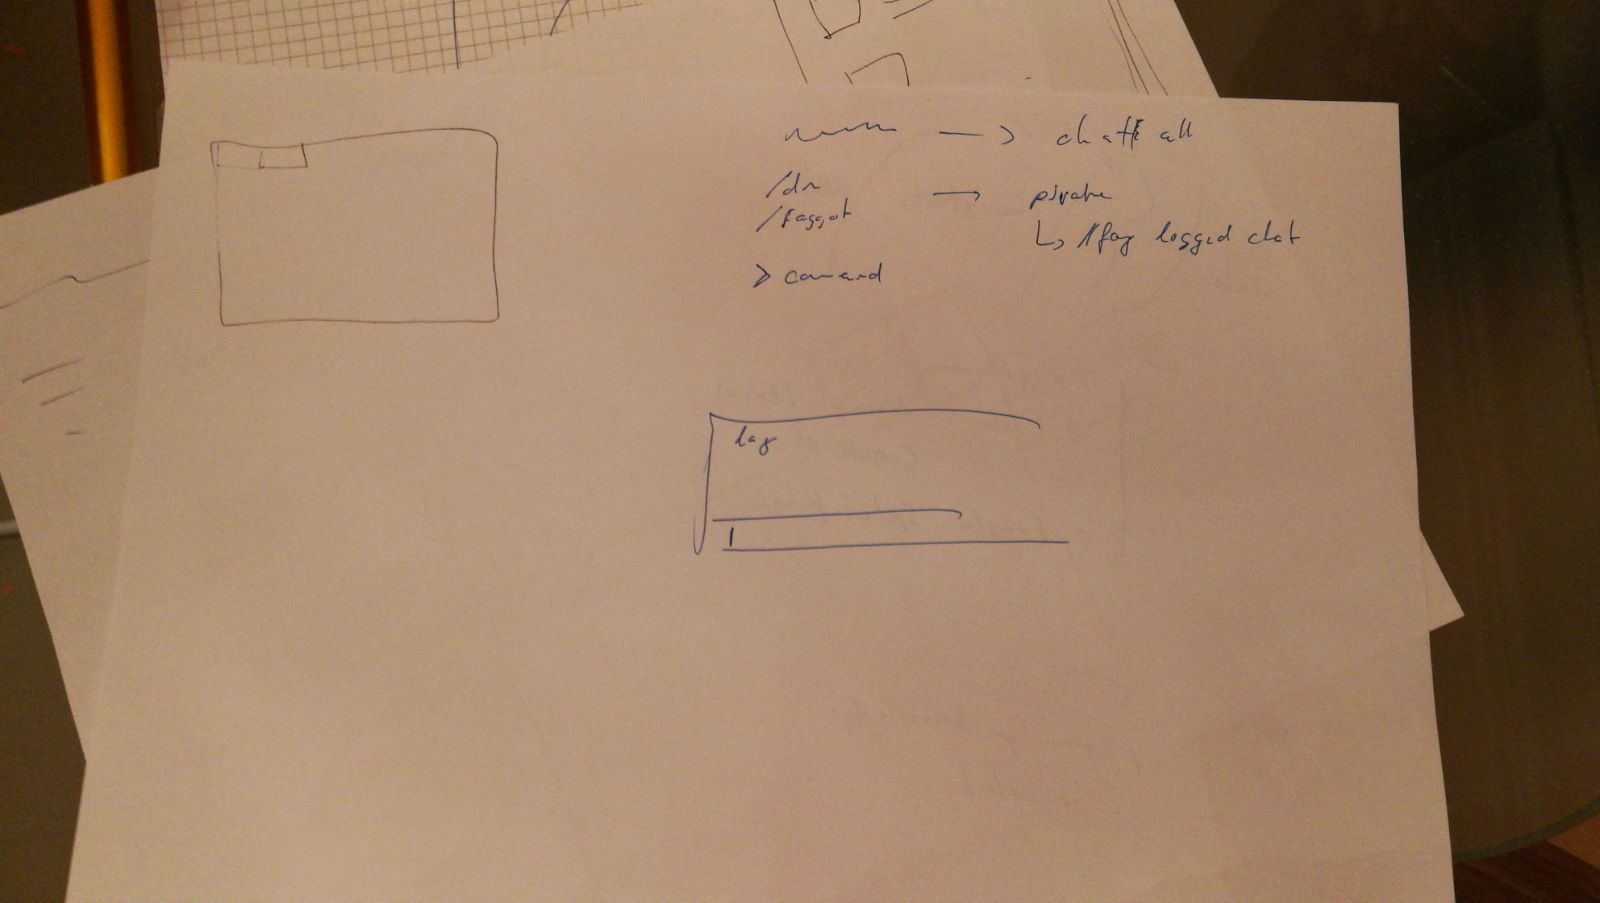 → chat all
/dm
/faggot → private
↳ logged chat
> comand
log